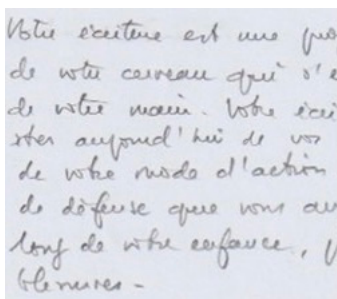 Votre écriture est une pro
de votre cerveau qui s'e
de votre main. Votre écri
êtes aujourd'hui de vos
de votre mode d'action
de défense que vous av
long de votre enfance,
blessures -